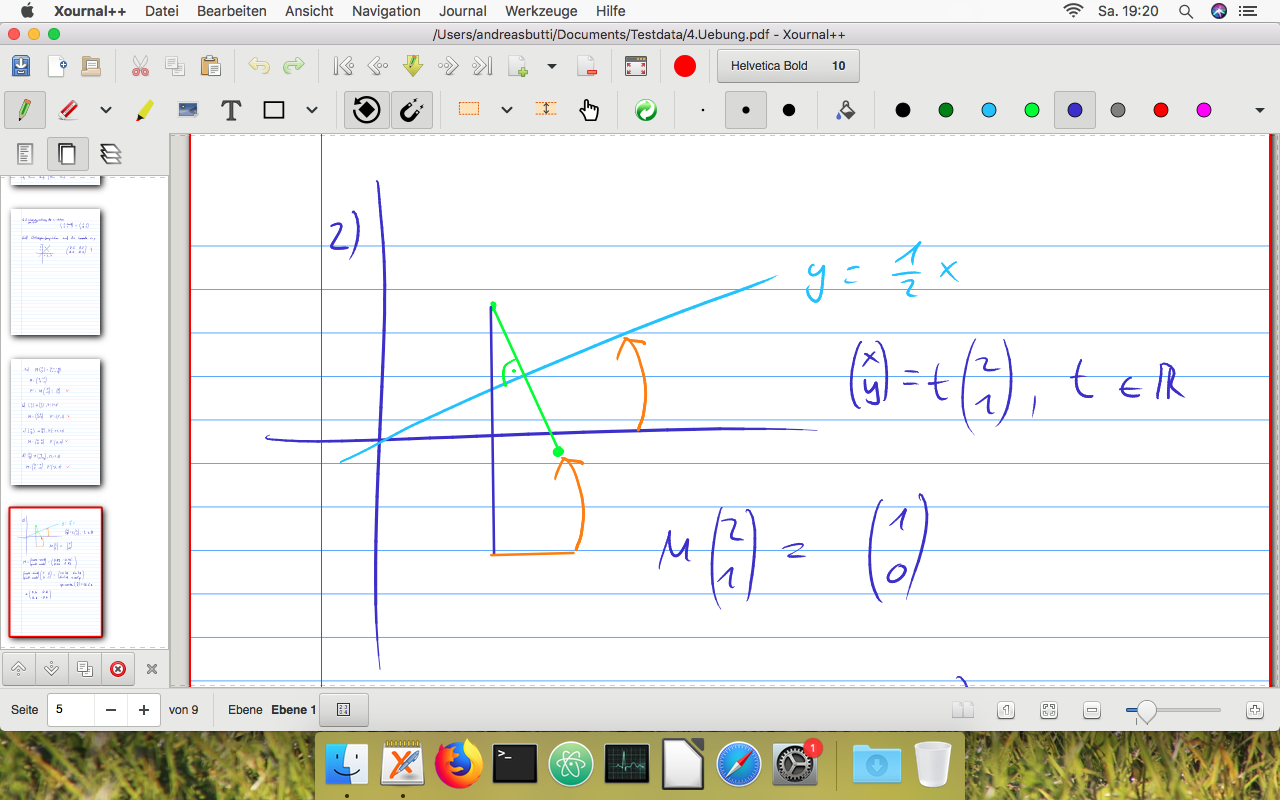 Xournal++ Datei Bearbeiten Ansicht Navigation Journal Werkzeuge Hilfe Sa. 19:20
/Users/andreasbutti/Documents/Testdata/4.Uebung.pdf - Xournal++
Helvetica Bold 10
T
2)
y = 1/2 x
(x y) = t (2 1), t ∈ ℝ
M (2 1) = (1 0)
Seite 5 von 9 Ebene Ebene 1
>_
1